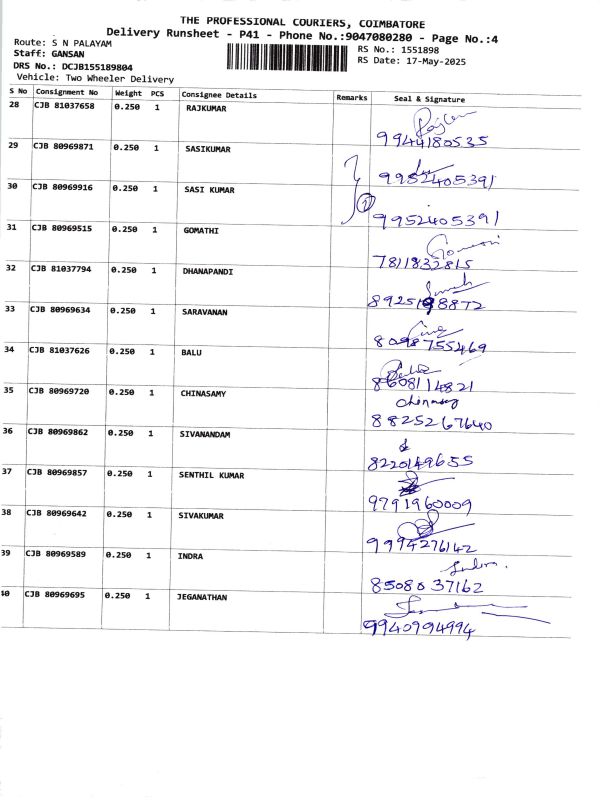 THE PROFESSIONAL COURIERS, COIMBATORE
Delivery Runsheet - P41 - Phone No.:9047080280 - Page No.:4
Route: S N PALAYAM
RS No.: 1551898
Staff: GANSAN
RS Date: 17-May-2025
DRS No.: DCJB155189804
Vehicle: Two Wheeler Delivery
S No Consignment No Weight PCS Consignee Details Remarks Seal & Signature
28 CJB 81037658 0.250 1 RAJKUMAR
9944180535
29 CJB 80969871 0.250 1 SASIKUMAR
9952405391
30 CJB 80969916 0.250 1 SASI KUMAR
9952405391
31 CJB 80969515 0.250 1 GOMATHI
7811832815
32 CJB 81037794 0.250 1 DHANAPANDI
33 CJB 80969634 0.250 1 SARAVANAN
8098755469
34 CJB 81037626 0.250 1 BALU
8608114821
35 CJB 80969720 0.250 1 CHINASAMY
8825267640
36 CJB 80969862 0.250 1 SIVANANDAM
8220149655
37 CJB 80969857 0.250 1 SENTHIL KUMAR
9791960009
38 CJB 80969642 0.250 1 SIVAKUMAR
9994276142
39 CJB 80969589 0.250 1 INDRA
Indra.
8508037162
40 CJB 80969695 0.250 1 JEGANATHAN
9940994994